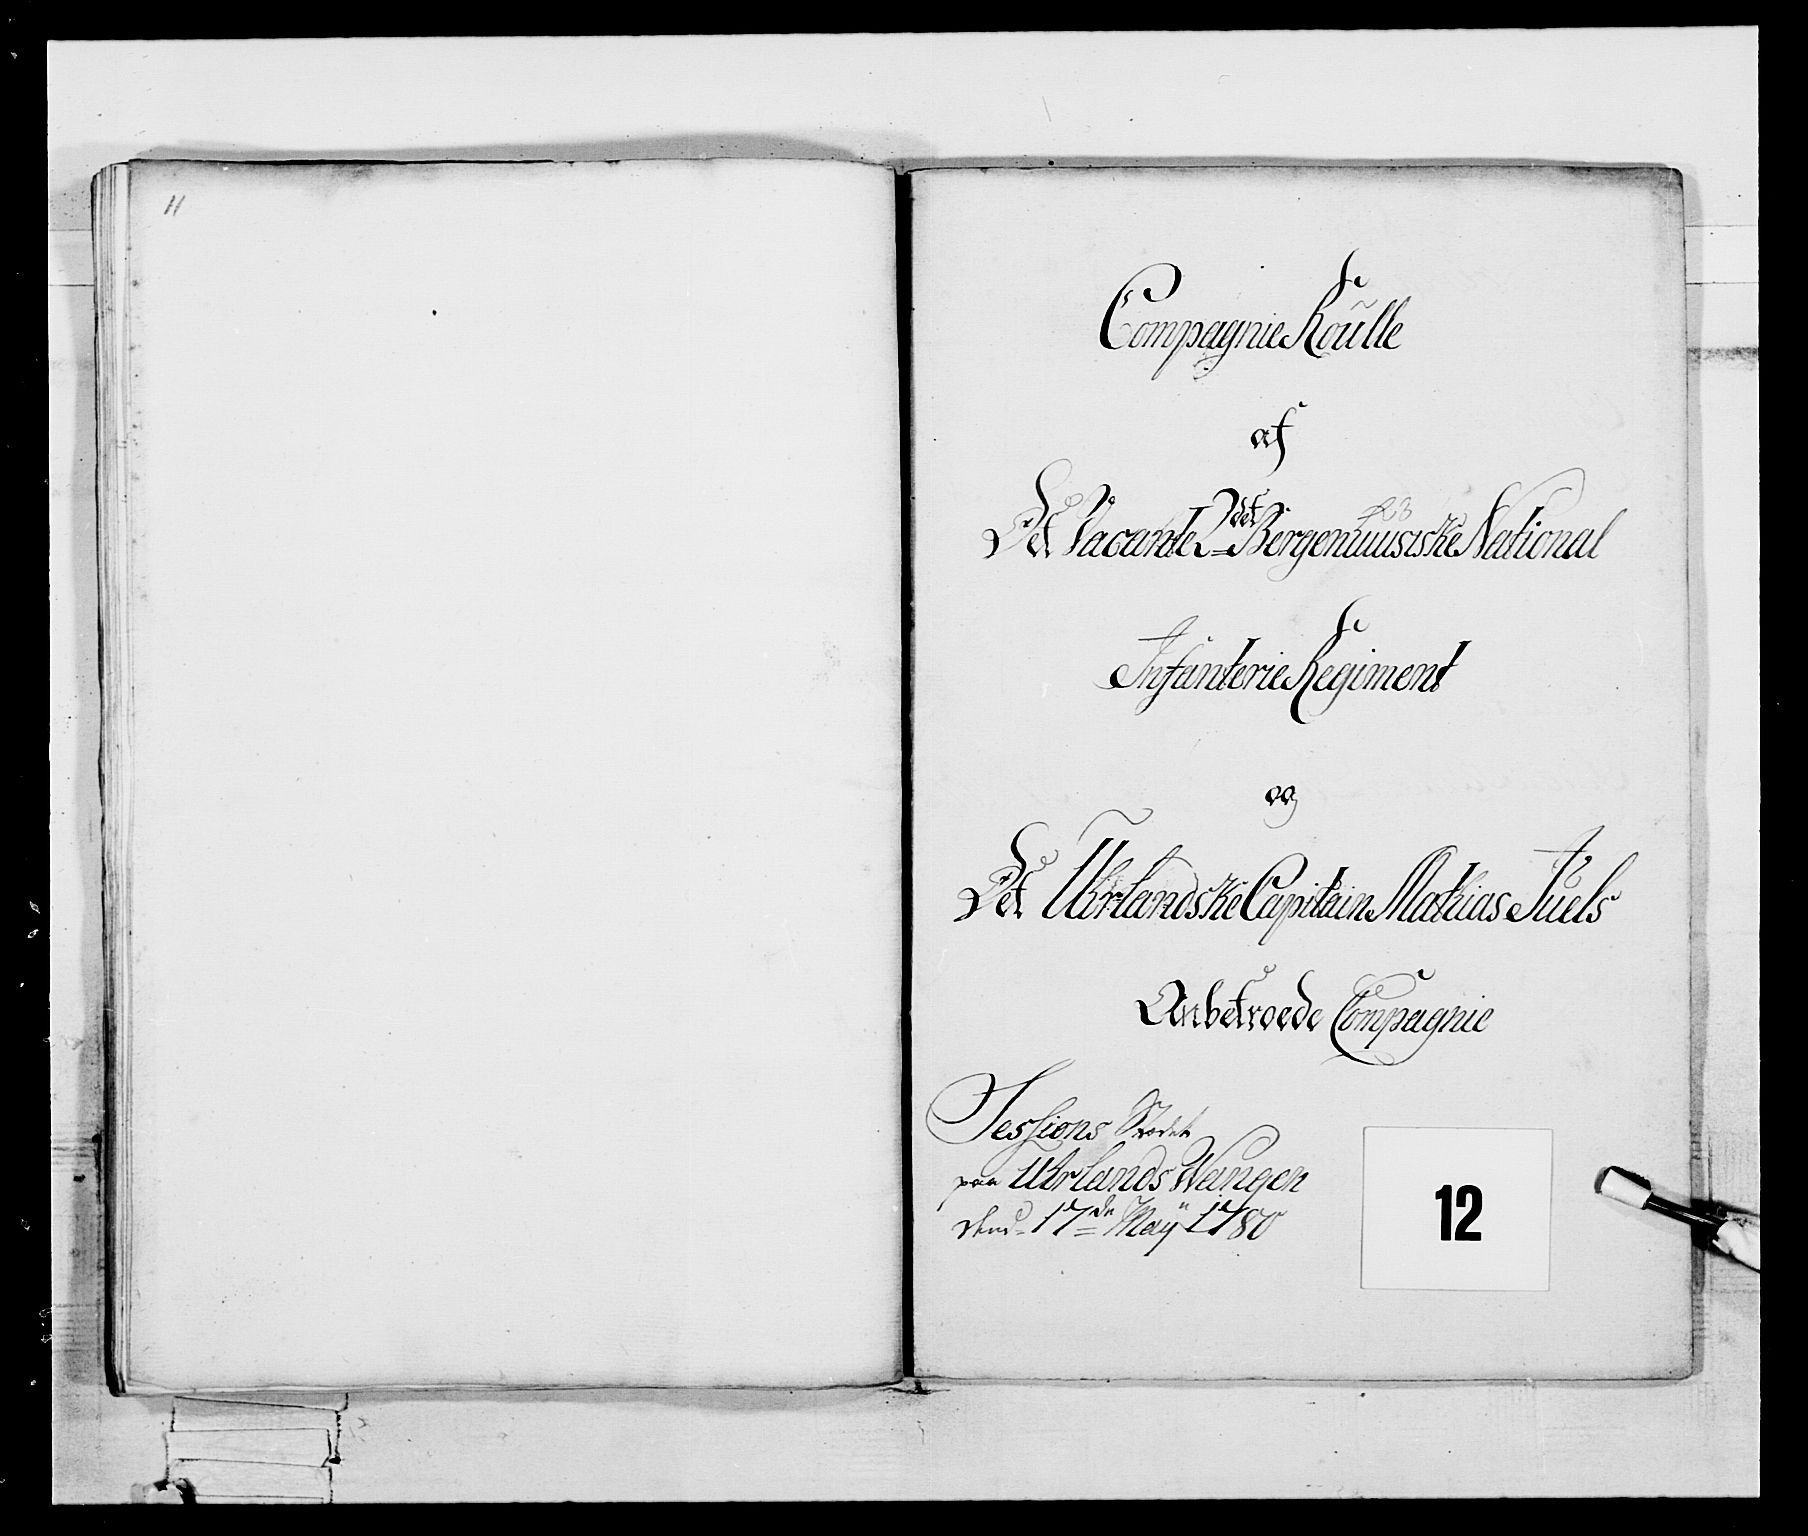 11
Compagnie Roulle
af
Det Vacante 2det Bergenhuusiske National
Infanterie Regiment
og
Det Uhrlandske Capitain Mathias Juels
Anbetroede Compagnie
Sessions Stædet
paa Uhrlands Wangen
dend 17de Maÿ 1780
12